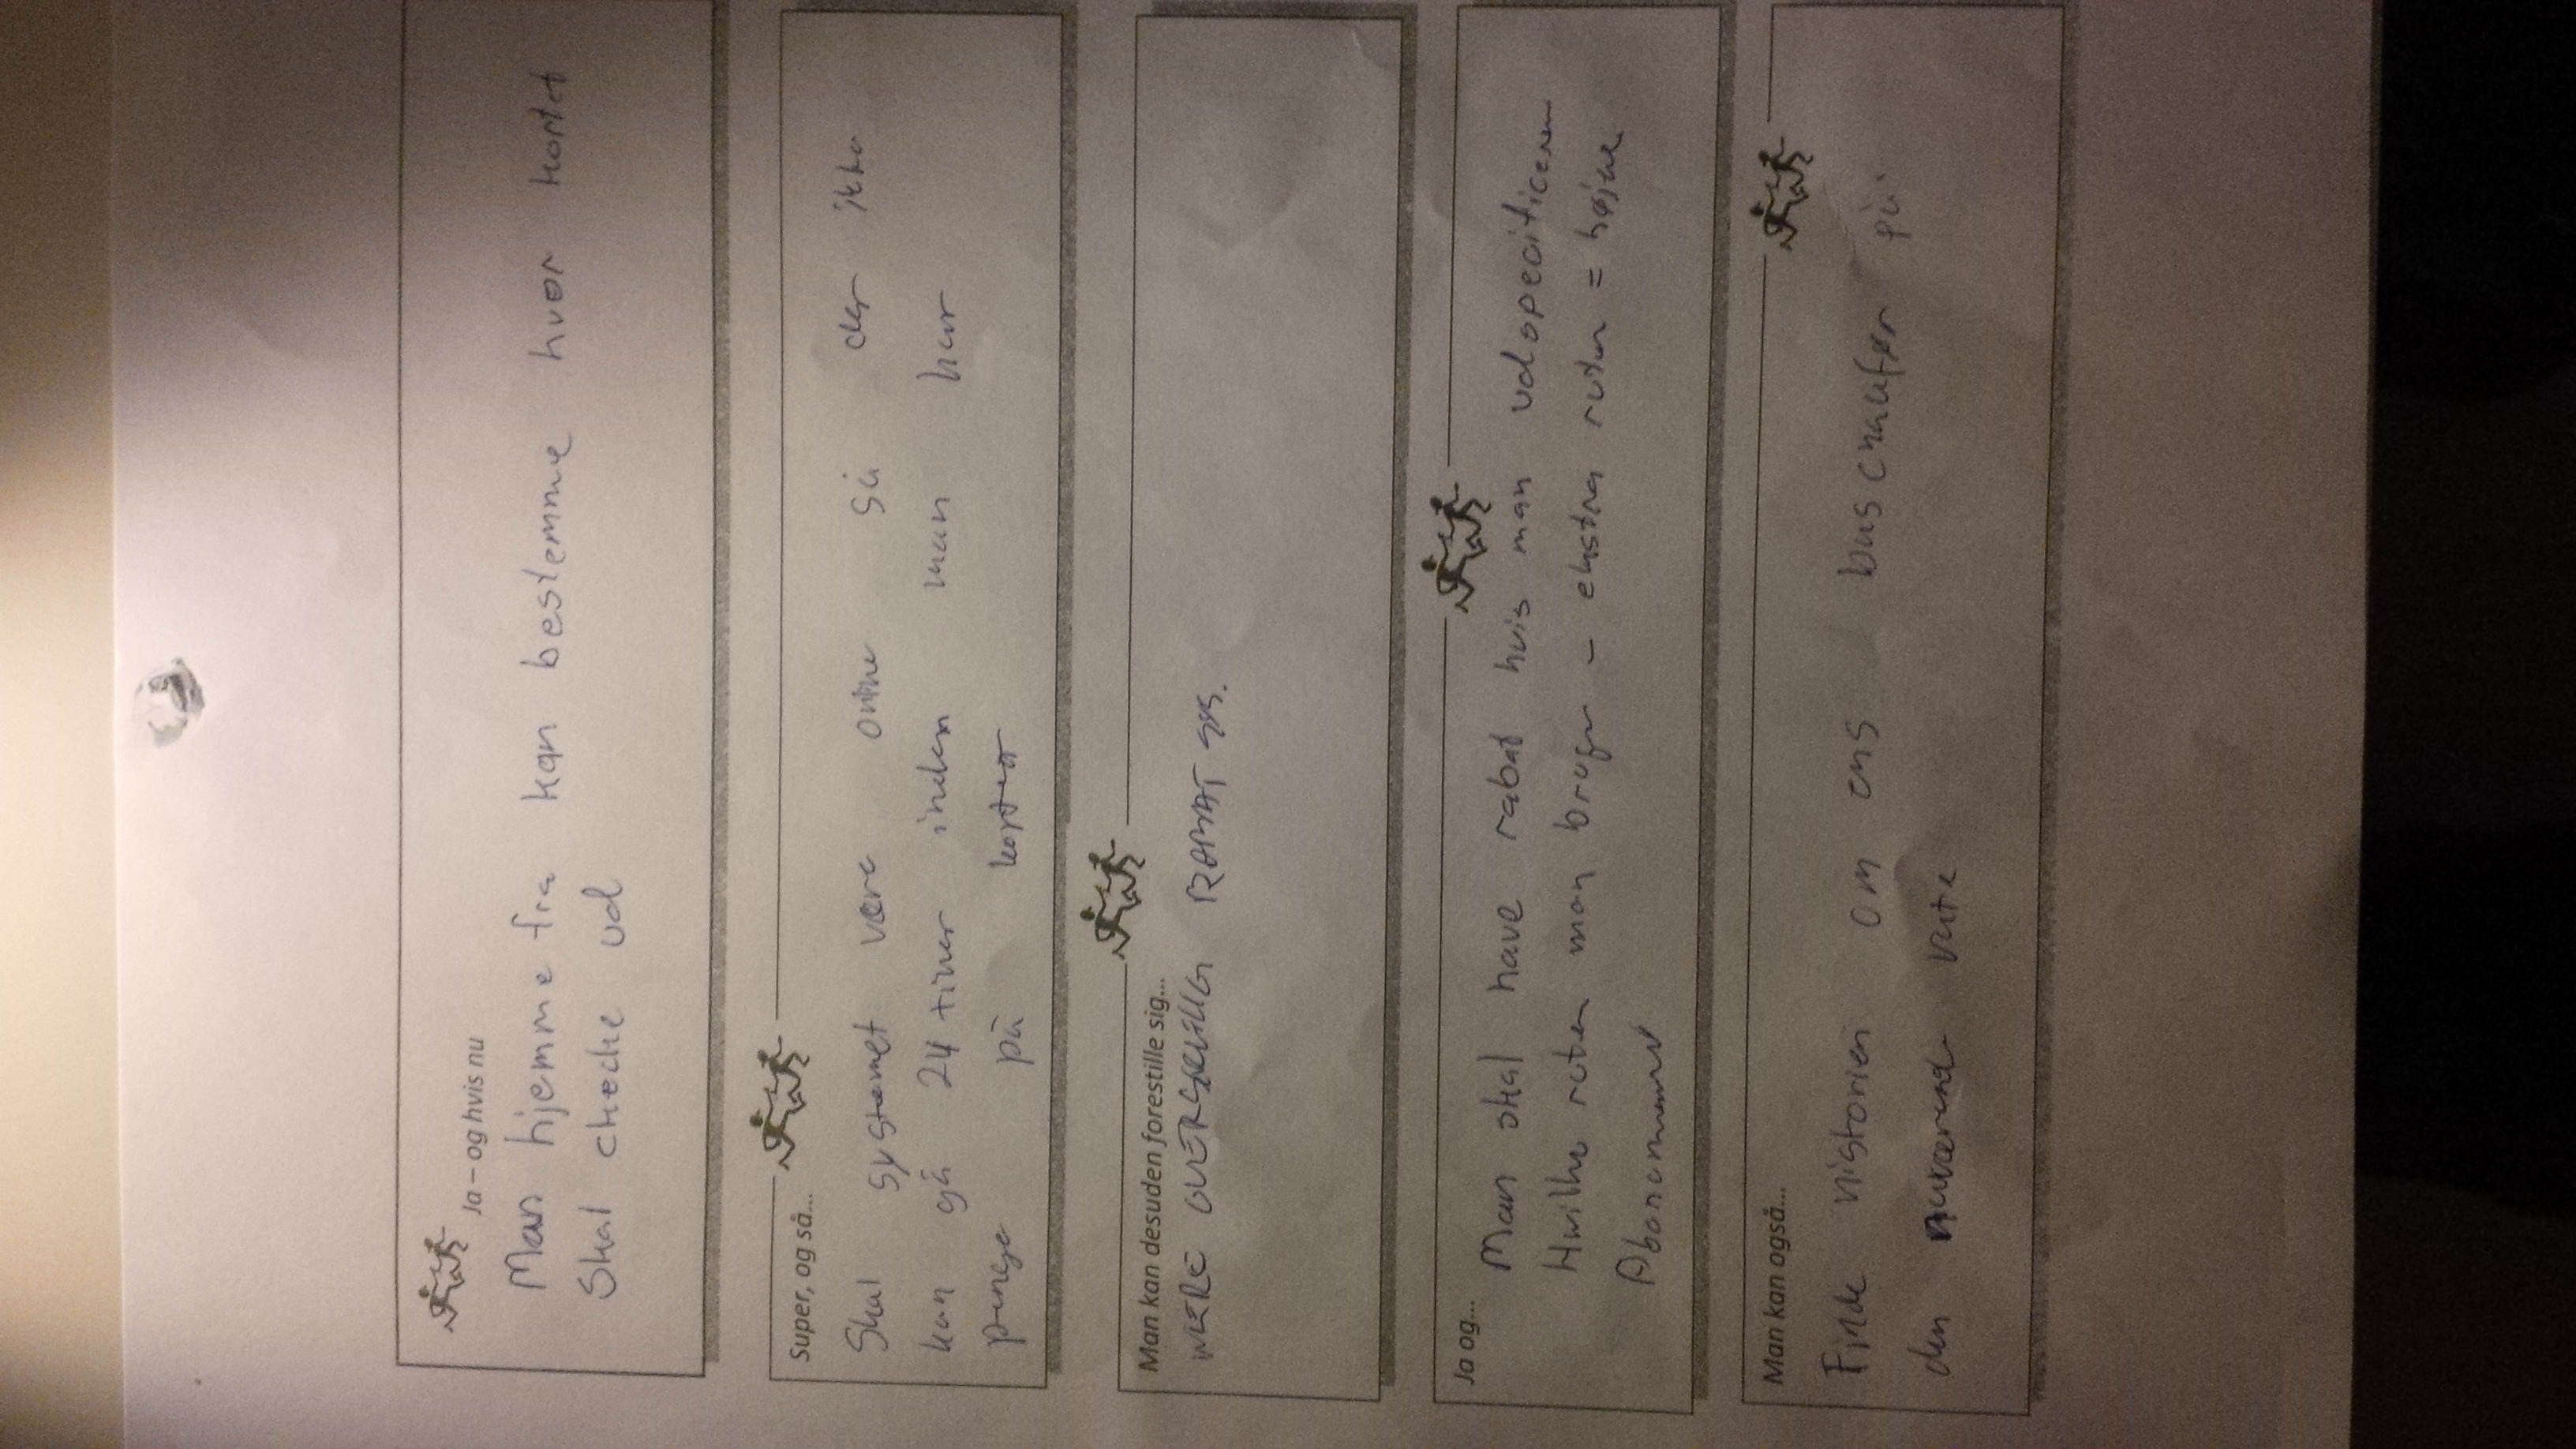 Ja – og hvis nu
Man hjemme fra kan bestemme hvor kortet
Skal checke ud
Super, og så...
Skal systemet være online så der ikke
kan gå 24 timer inden man har
penge på kortet
Man kan desuden forestille sig...
MERE RABAT SYS.
Ja og...
Man skal have rabat hvis man udspecificerer
Hvilke ruter man bruger - ekstra ruter = højere
Abonnement
Man kan også...
Finde historien om ens bus chauffør på
den nuværende rute